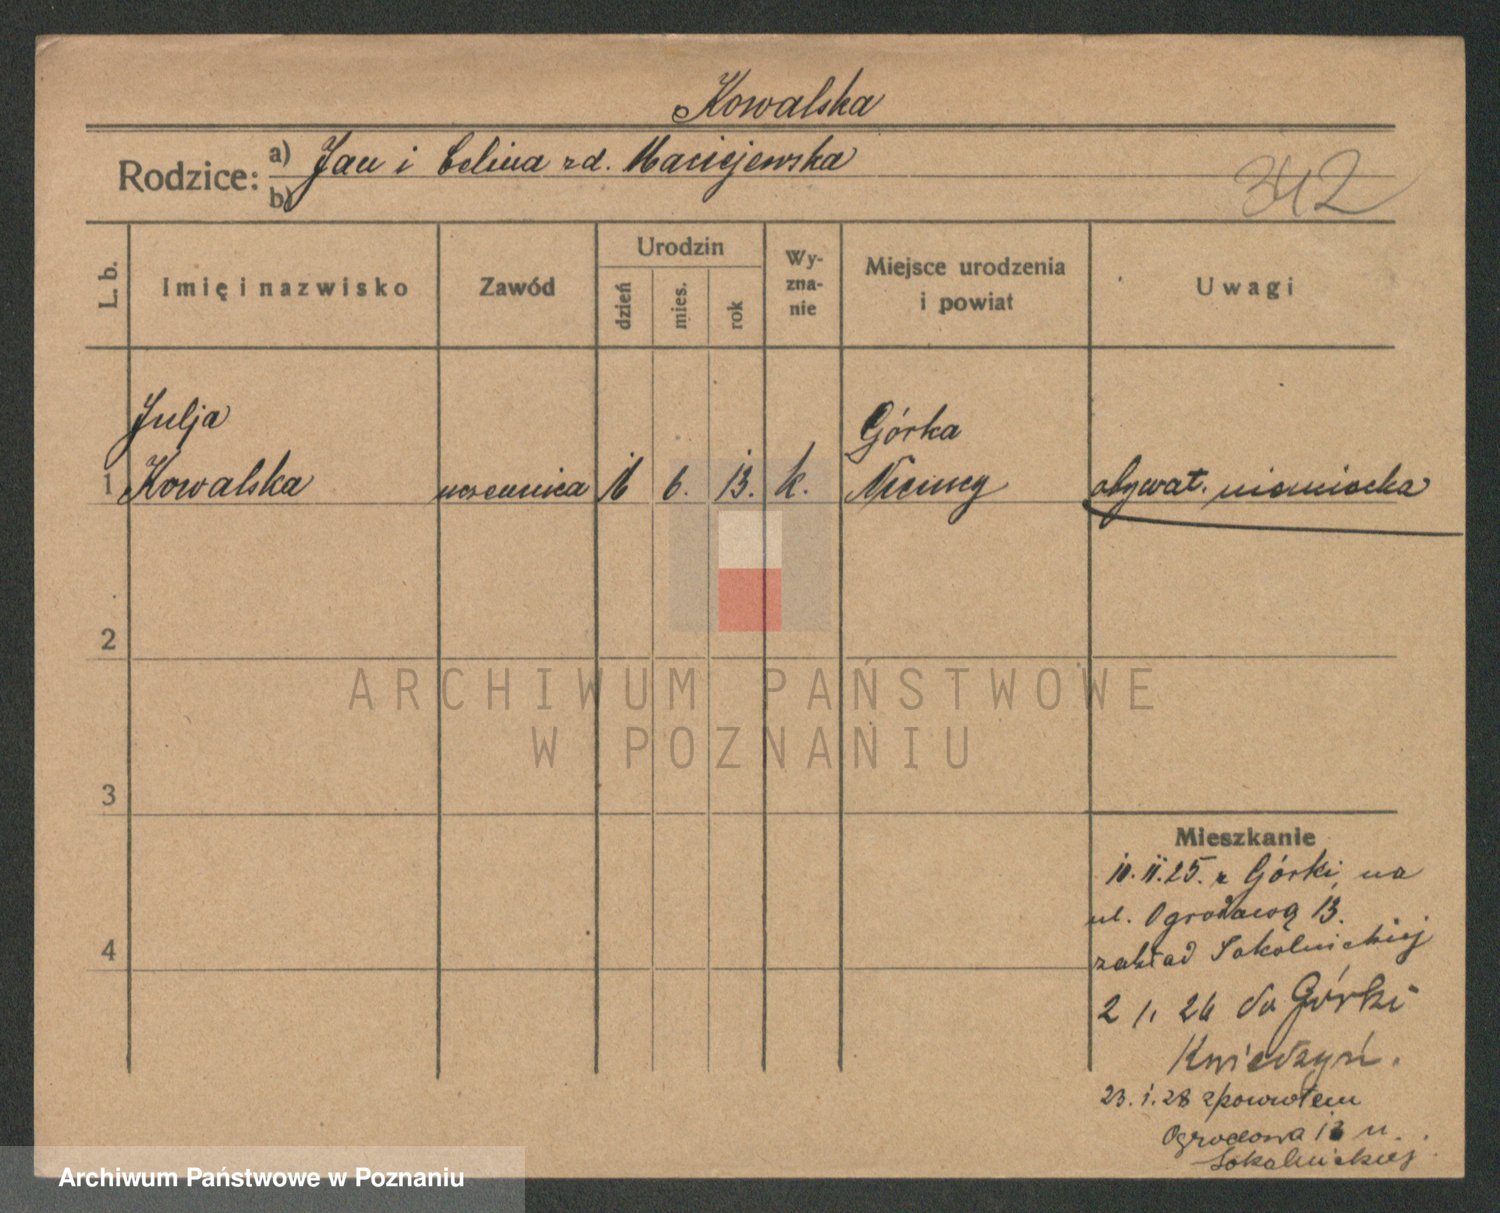 Kowalska
Rodzice: a) Jan i Celina zd. Maciejewska
b)
342
L. b.
Imię i nazwisko
Zawód
Urodzin
dzień
mies.
rok
Wy-
zna-
nie
Miejsce urodzenia
i powiat
Uwagi
Julja
Górka
1 Kowalska uczennica 16 6. 13. k. Niemcy obywat. niemiecka
2
ARCHIWUM PAŃSTWOWE
W POZNANIU
3
Mieszkanie
10. II. 25. z Górki na
ul. Ogrodową 13.
4
zakład Sokolnickiej
2 1. 26 do Górki
Kwiedzyń.
23. 1. 28 zpowrotem
Ogrodowa 13 u.
Sokolnickiej
Archiwum Państwowe w Poznaniu